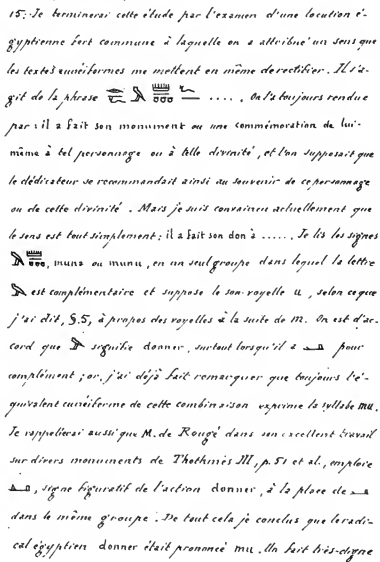 15: Je terminerai cette étude par l'examen d'une locution é-
gyptienne fort commune à laquelle on a attribué un sens que
les textes cunéiformes me mettent en même de rectifier. Il s'a-
git de la phrase ..... On l'a toujours rendue
par: il a fait son monument ou une commémoration de lui-
même à tel personnage ou à telle divinité, et l'on supposait que
le dédicateur se recommandait ainsi au souvenir de ce personnage
ou de cette divinité. Mais je suis convaincu actuellement que
le sens est tout simplement: il a fait son don à ...... Je lis les signes
, muna ou munu, en un seul groupe dans lequel la lettre
est complémentaire et suppose le son-voyelle u, selon ce que
j'ai dit, §.5, à propos des voyelles à la suite de m. On est d'ac-
cord que signifie donner, surtout lorsqu'il a pour
complément; or, j'ai déjà fait remarquer que toujours l'é-
quivalent cunéiforme de cette combinaison exprime la syllabe mu.
Je rappellerai aussi que M. de Rougé dans son excellent travail
sur divers monuments de Thothmès III, p. 51 et al., emploie
, signe figuratif de l'action donner, à la place de
dans le même groupe. De tout cela je conclus que le radi-
cal égyptien donner était prononcé mu. Un fait très-digne